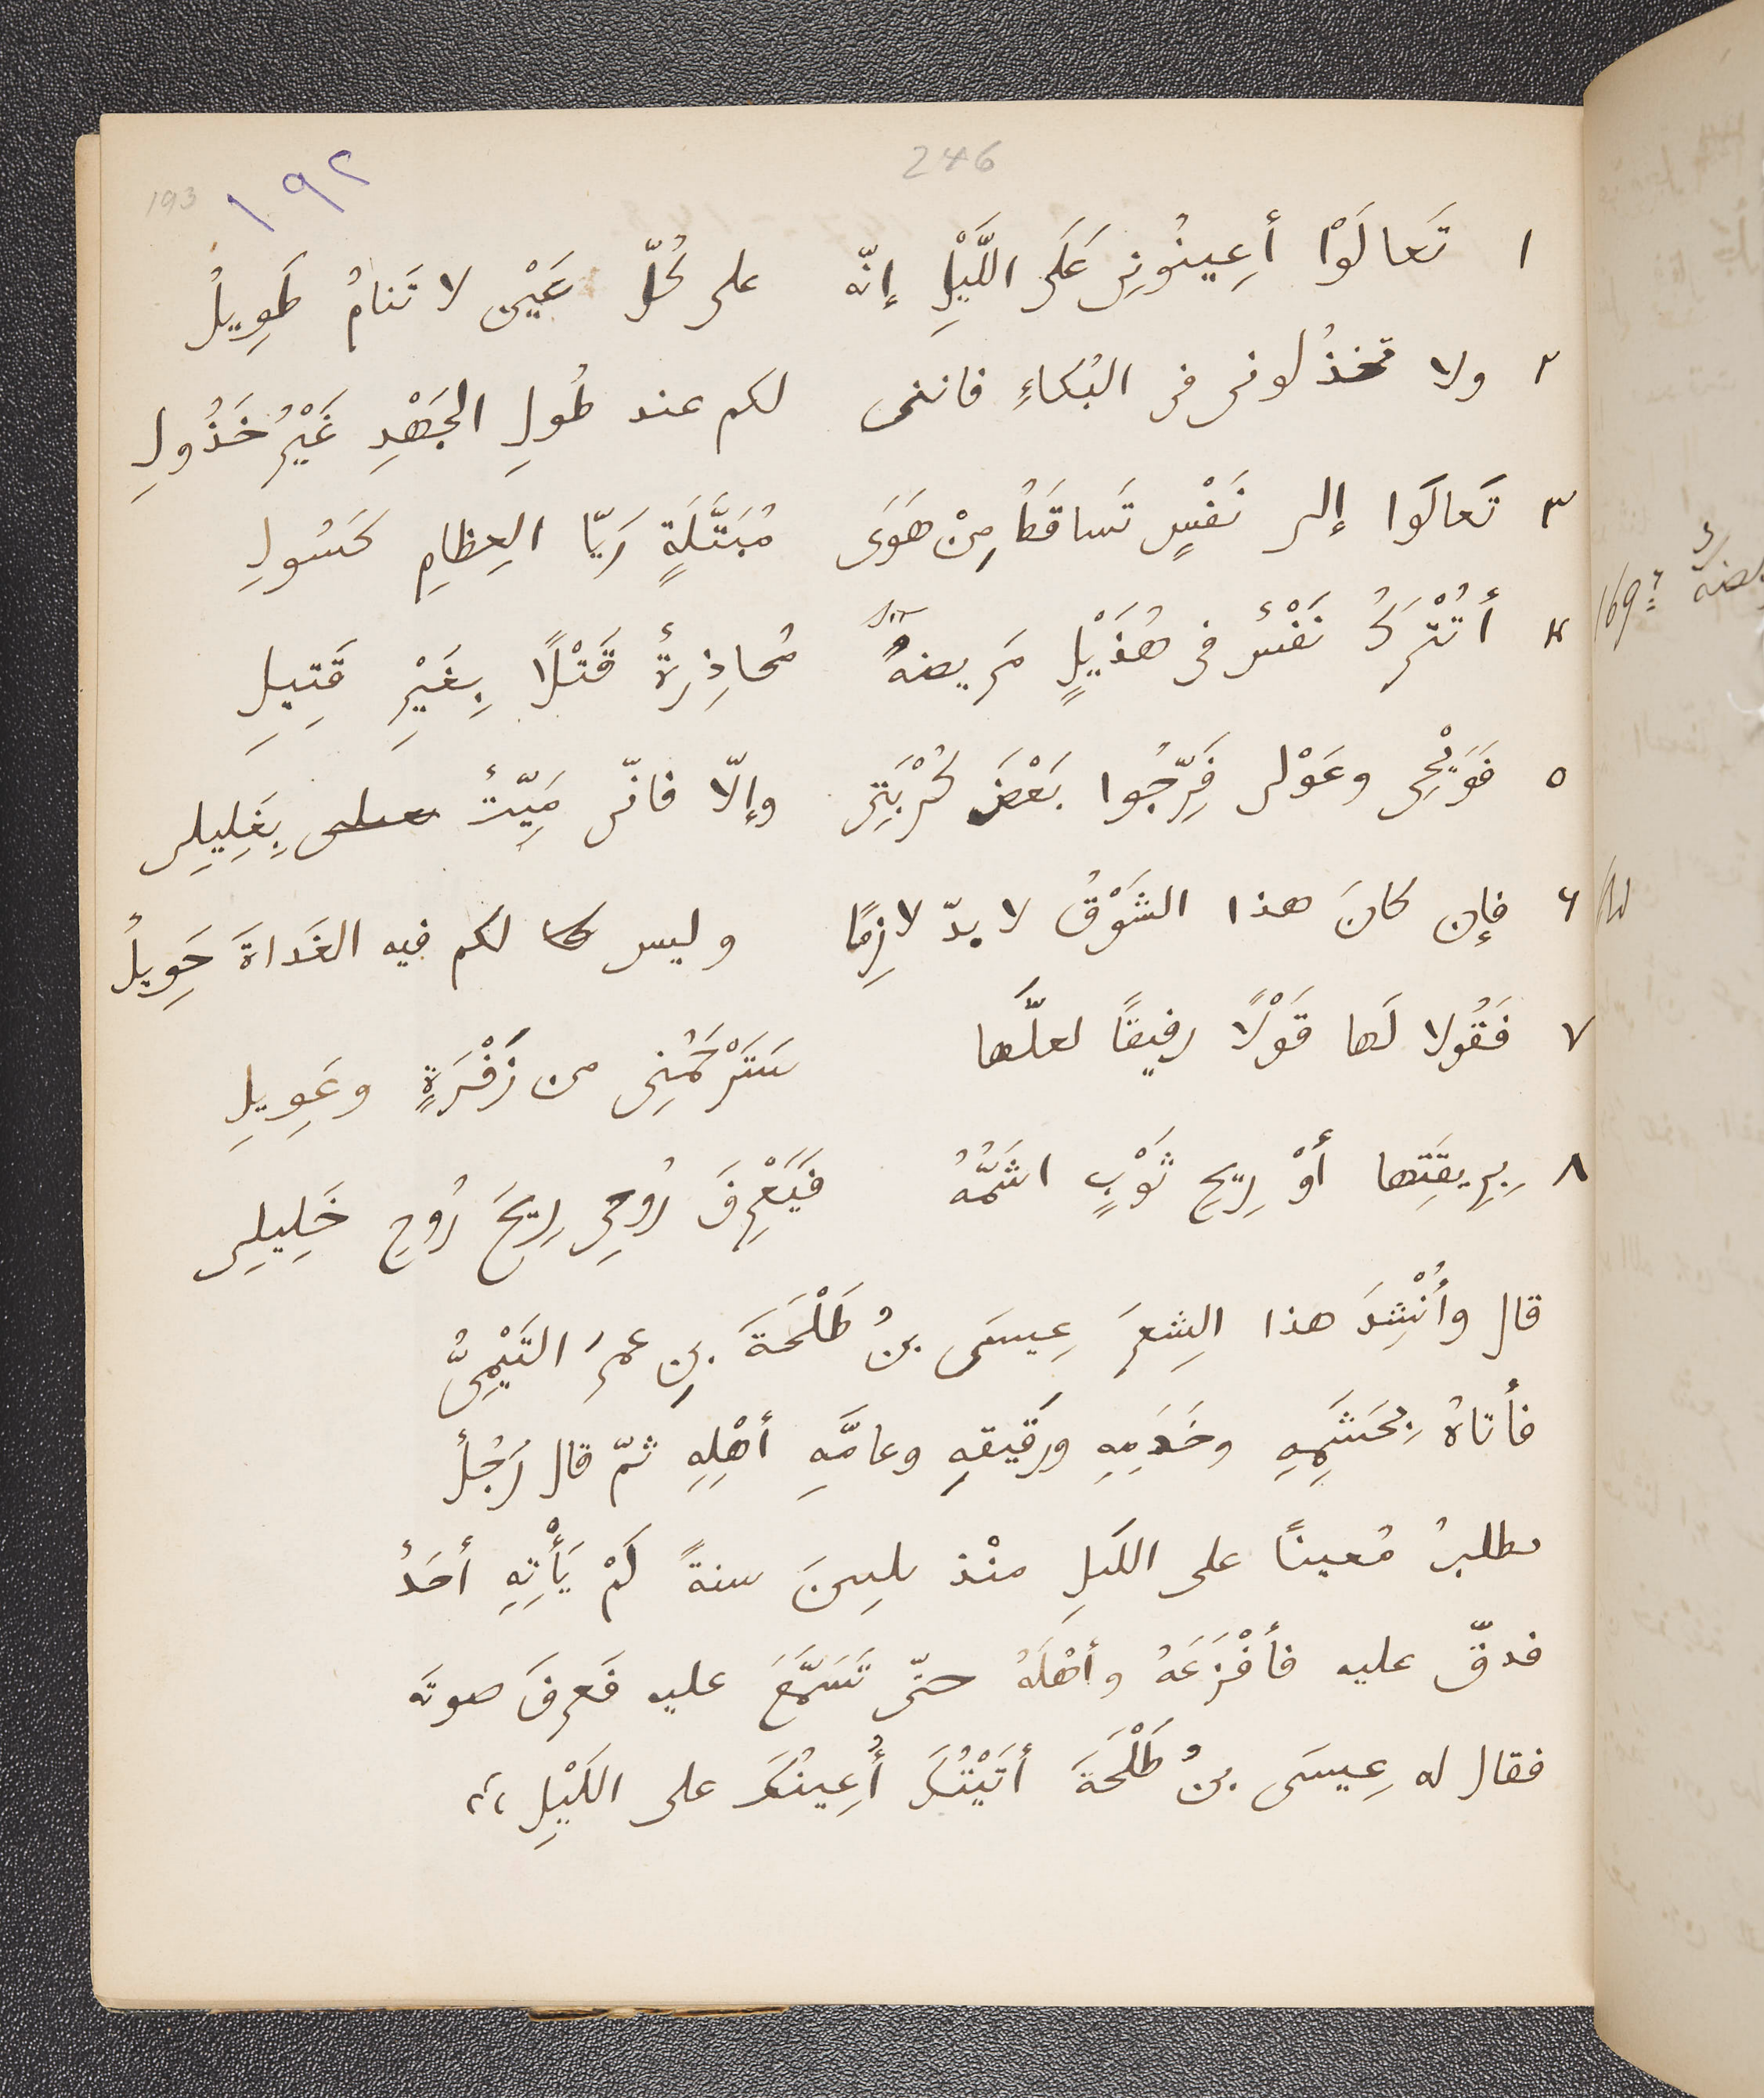 246
193 ١٩٢
١ تَعالَوْا أَعِينُونِى عَلَى اللَّيْلِ إنّه على كُلّ عَيْنٍ لا تَنامُ طَوِيلُ
٢ ولا تخذُلونى فى البُكاءِ فاننى لكم عند طُولِ الجَهْدِ غَيْرُ خَذُولِ
٣ تَعالَوَا إلى نَفْسٍ تَساقَطُ مِنْ هَوَى مُبَتَّلَةٍ رَيّا العِظامِ كَسُولِ
٤ أَتُتْرَكُ نَفْسٌ فى هُذَيْلٍ مَريضةٌ مُحاذِرةٌ قَتْلًا بِغَيْرِ قَتِيلِ
٥ فَوَيْحِى وعَوْلى فَرِّجُوا بَعْضَ كُرْبَتِى وإلّا فانّى مَيِّتٌ بِغَلِيلِى
٦ فإن كانَ هذا الشَوْقُ لا بدّ لازِمًا وليس لكم فيه الغَداةَ حَوِيلُ
٧ فَقُولا لَها قَوْلًا رفيقًا لعلَّها سَتَرْحَمُنِى من زَفْرَةٍ وعَوِيلِ
٨ بِرِيقَتِها أَوْ رِيحِ ثَوْبٍ اشَمُّهُ فَيَعْرِفَ رُوحِى رِيحَ رُوحِ خَلِيلِى
قال وأُنْشِدَ هذا الشِعرَ عِيسَى بنُ طَلْحَةَ بنِ عمرَ التَيْمِىُّ
فأتاهُ بِحَشَمِهِ وخَدَمِهِ ورَقيقهِ وعامَّهِ أهْلِهِ ثمّ قال رَجُلٌ
ىطلبُ مُعينًا على اللَيلِ منْذ ىلىىنَ سنةً لَمْ يَأْتِهِ أحَدٌ
فدقّ عليه فأفْزَعَهُ وأهْلَهُ حتّى تَسَمَّعَ عليه فَعرفَ صوتَه
فقال له عِيسَى بنُ طَلْحَةَ أتَيْتُكَ أُعِينُكَ على اللَيْلِ ،،
169